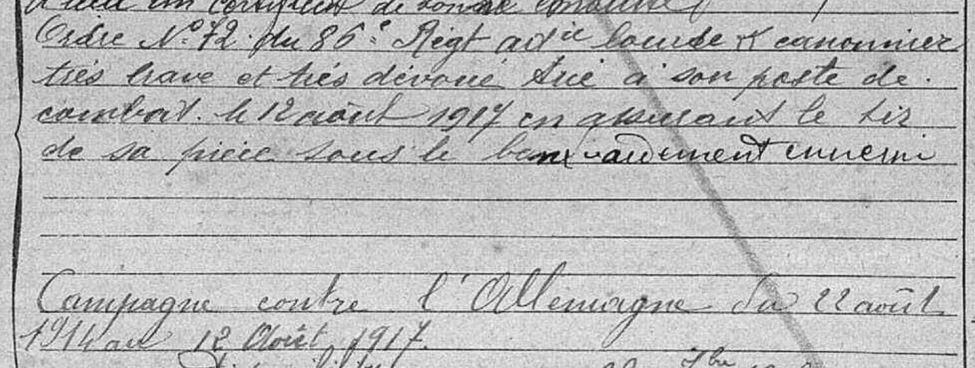 a reçu un certificat de bonne conduite
Ordre N° 72 du 86e Régt adie lourde & canonnier
très brave et très dévoué tué à son poste de
combat. le 12 août 1917 en assurant le tir
de sa pièce sous le bombardement ennemi
Campagne contre l'Allemagne du 22 août
1914 au 12 Août 1917.